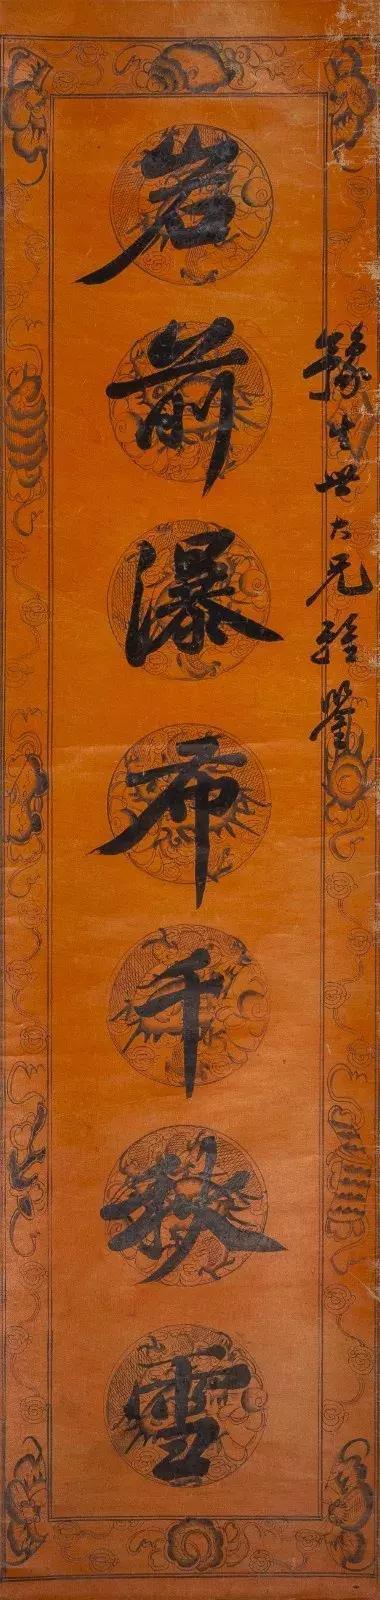 豫生世大兄雅鑒
岩前瀑布千秋雪